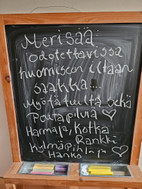 Merisää
odotettavissa
huomiseen iltaan
saakka
Myötätuulta sekä
Poutapilviä ♡
Harmaja, Kotka
Rankki
Kylmäpihlaja
Hanko ♡